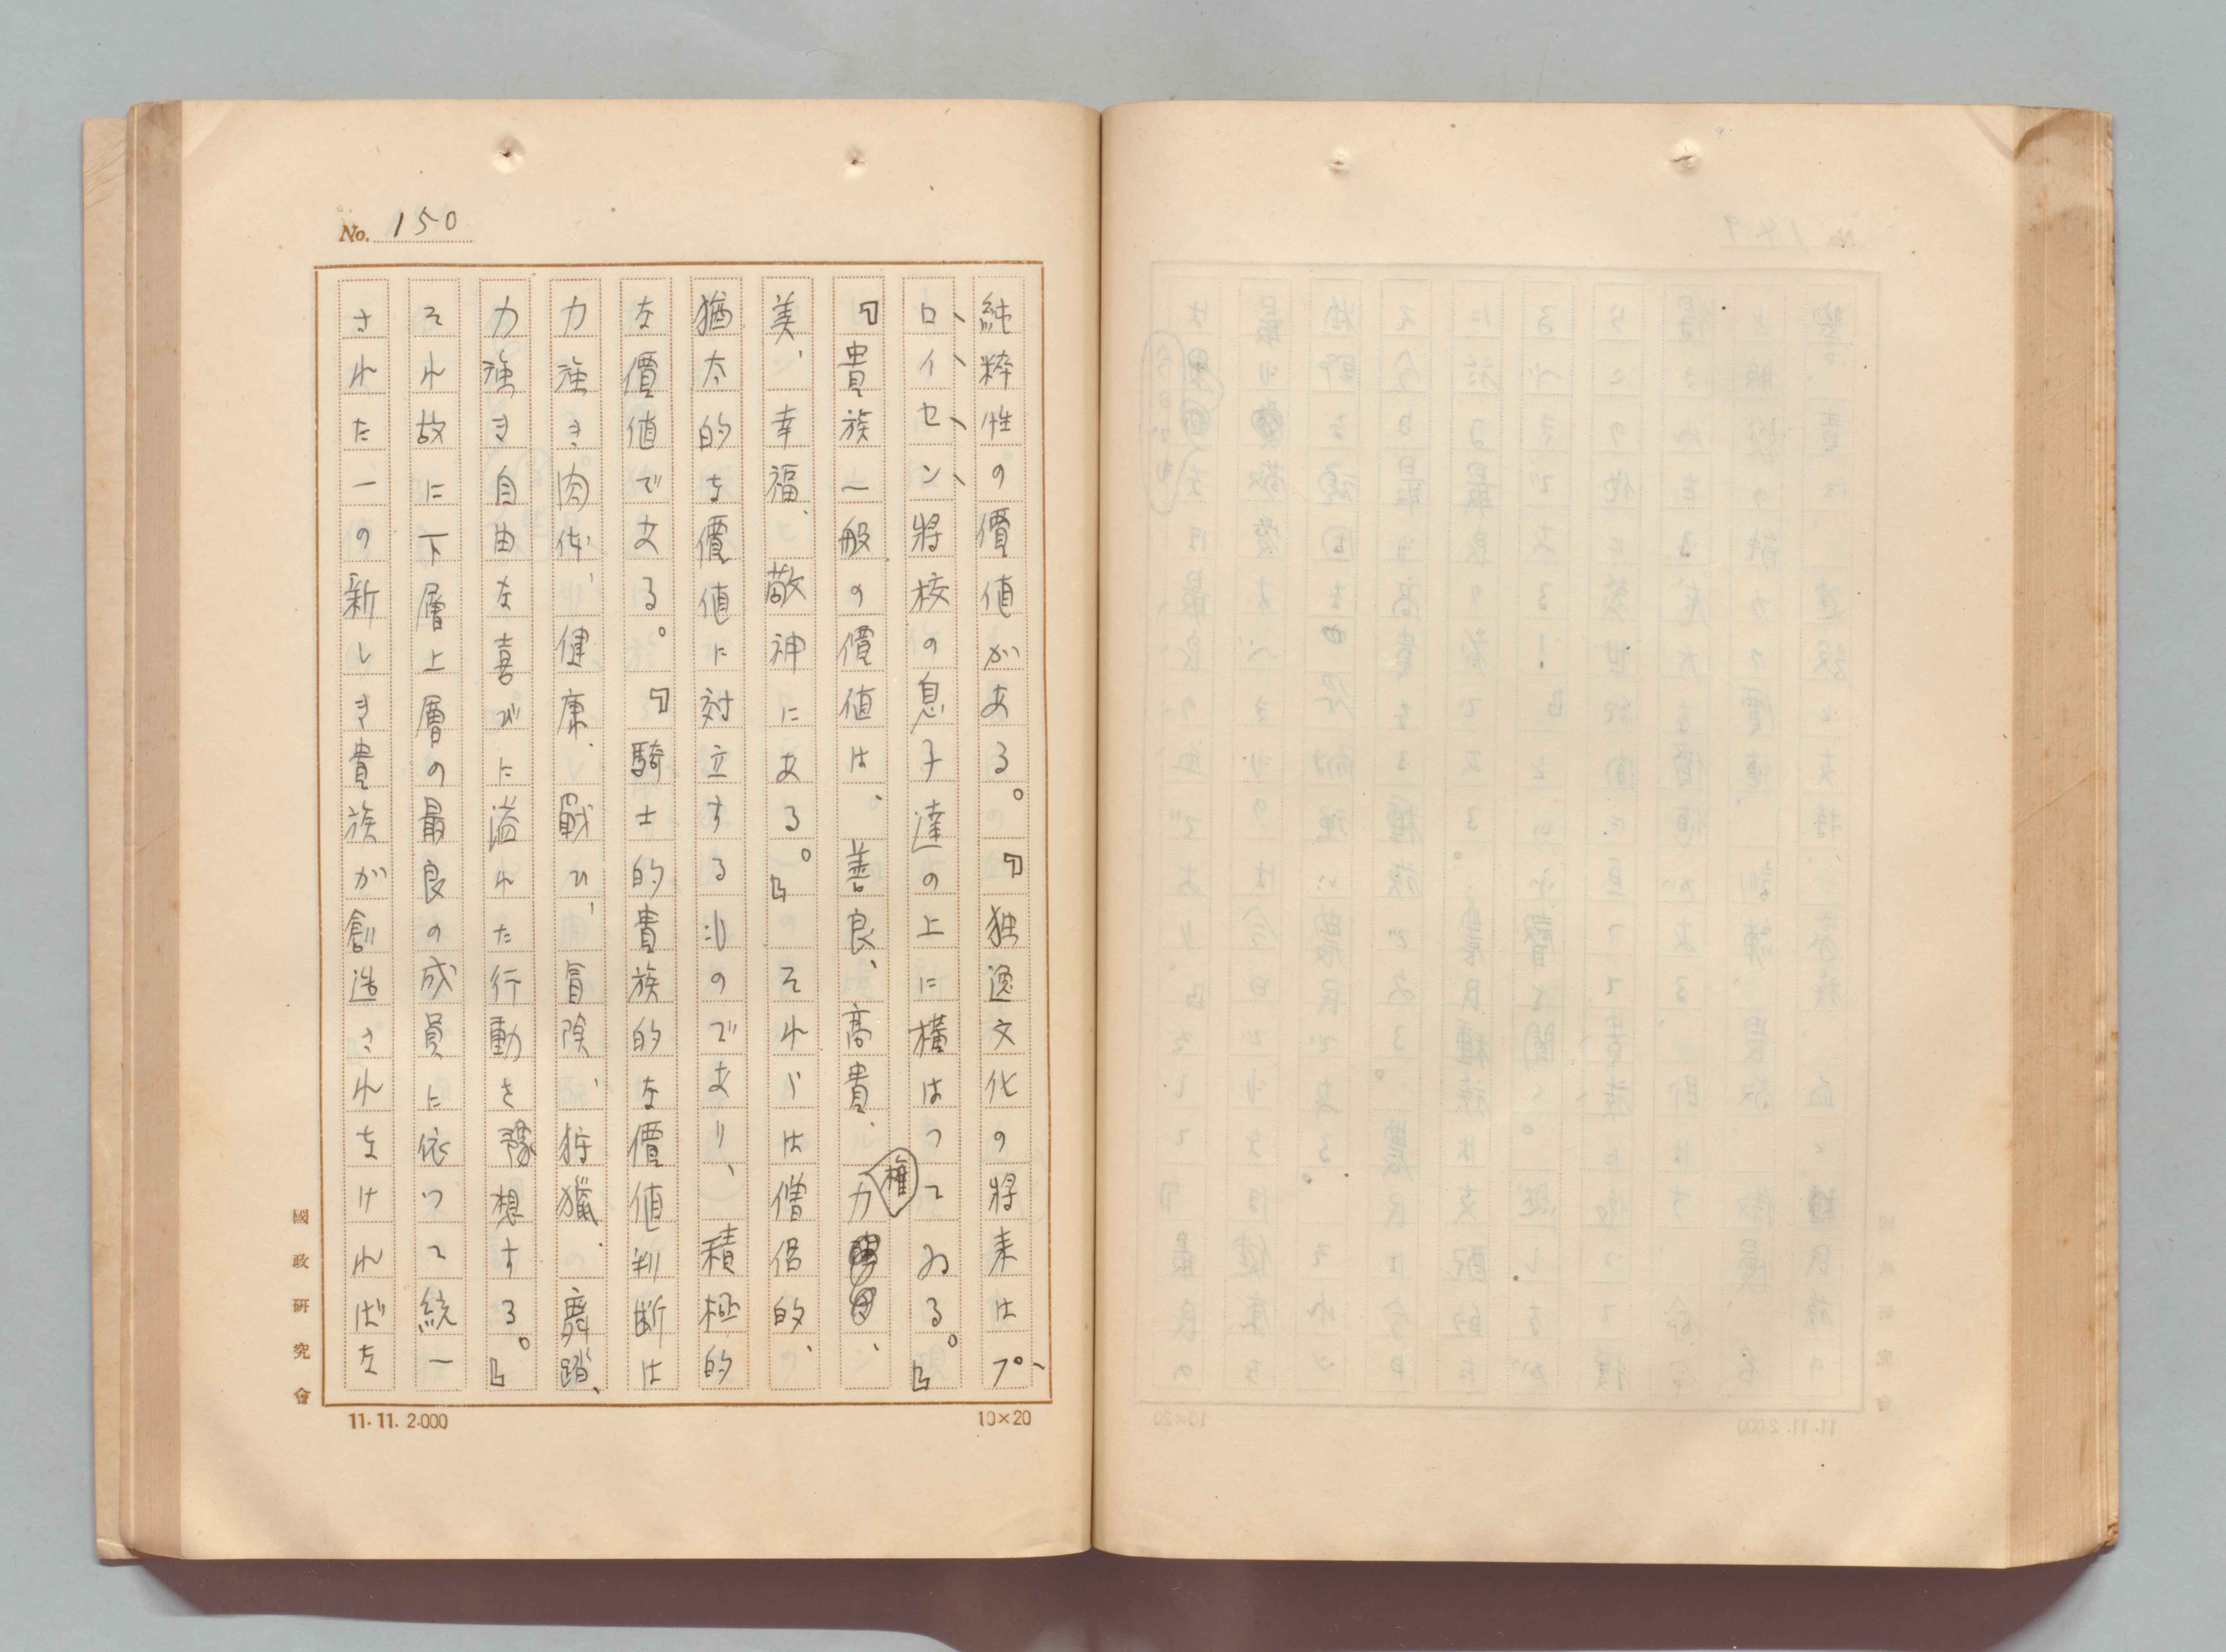 No. 150
純粋性の價値がある。『独逸文化の将来はプ
ロイセン将校の息子達の上に横はつてゐる。』
『貴族一般の價値は、善良、高貴、権力、
美、幸福、敬神にある。』それらは僧侶的、
猶太的な價値に対立するものであり、積極的
な價値である。『騎士的貴族的な價値判断は
力強き肉体、健康、戰ひ、冒険、狩獵、舞踏、
力強き自由な喜びに溢れた行動を豫想する。』
それ故に下層上層の最良の成員に依つて統一
された一の新しき貴族が創造されなければな
國政研究會
11.11. 2.000
10×20